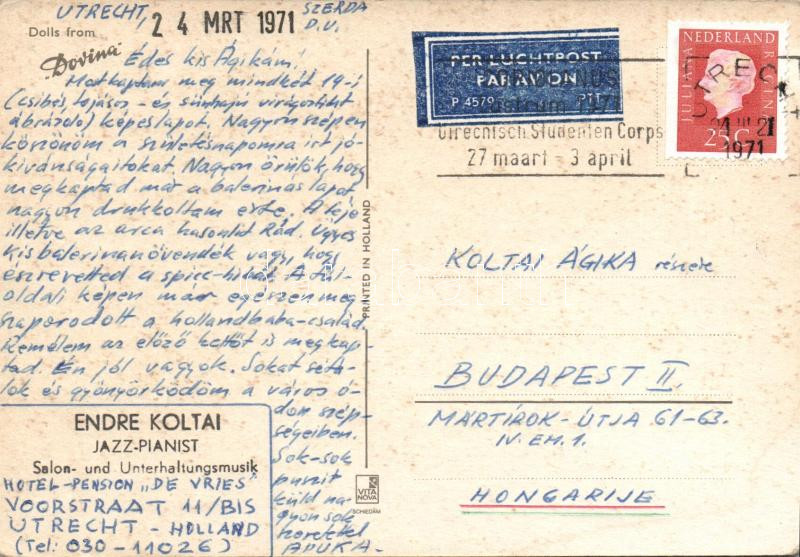 UTRECHT, 24 MRT 1971 SZERDA
D.U.
Dolls from
"Dovina"
Édes kis Ágikám!
Megkaptam még mindkét 19-i
(csibés, tojásos - és sünhajú virágostült
ábrázoló) képeslapot. Nagyon szépen
köszönöm a születésnapomra írt jó-
kívánságaitokat. Nagyon örülök, hogy
megkaptad már a balerinás lapot
nagyon drukkoltam érte. A feje
illetve az arca hasonlít Rád. Ügyes
kis balerinanövendék vagy, hogy
észrevetted a spicc-hibát. A túl-
oldali képen már egészen meg
szaporodott a hollandbaba-család.
Remélem az előző kettőt is megkap-
tad. Én jól vagyok. Sokat sétá-
lok és gyönyörködöm a város ó-
don szép-
ségeiben.
Sok-sok
puszit
küld na-
gyon sok
szeretettel
APUKA.
ENDRE KOLTAI
JAZZ-PIANIST
Salon- und Unterhaltungsmusik
HOTEL-PENSION "DE VRIES"
VOORSTRAAT 11/BIS
UTRECHT - HOLLAND
(Tel: 030-11026)
PRINTED IN HOLLAND
VITA
NOVA
SCHIEDAM
PER LUCHTPOST
PAR AVION
P 4579 PTT
lustrum 1971
Utrechtsch Studenten Corps
27 maart - 3 april
NEDERLAND
JULIANA REGINA
25 C
UTRECHT
1971
KOLTAI ÁGIKA részére
BUDAPEST II.
MÁRTIROK-ÚTJA 61-63.
IV. EM. 1.
HONGARIJE